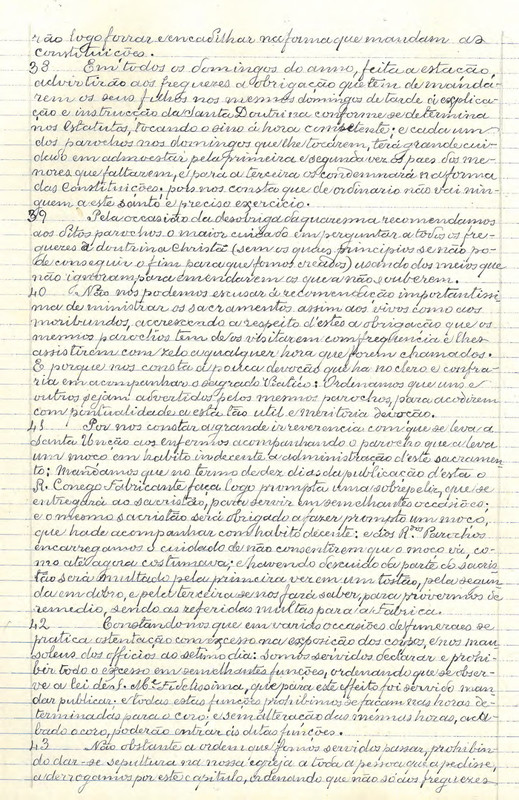 rão logo forrar e encadilhar na forma que mandam as
constituições.
38 Em todos os domingos do anno, feita a estação,
advirtirão aos freguezes a obrigação que têm de mandá-
rem os seus filhos nos mesmos domingos de tarde á explica-
ção e instrucção da Santa Doutrina conforme se determina
nos Estatutos, tocando o sino á hora competente; e cada um
dos parochos nos domingos que lhe tocárem, terá grande cui-
dado em admoestar pela primeira e segunda vez os paes dos me-
nores que faltarem, e para a terceira os condemnará na forma
das Constituições. pois nos consta que de ordinario não vai nin-
guem a este santo e preciso exercicio.
39 Pela occasião da desobriga da quaresma recomendamos
aos ditos parochos o maior cuidado em perguntar a todos os fre-
guezes a doutrina Christã (sem os quaes principios se não po-
de conseguir o fim para que fomos creados) usando dos meios que
não ignoram, para emendarem os que a não souberem.
40 Não nós podemos escusar á recomendação importantissi
ma de ministrar os sacramentos assim aos vivos como aos
moribundos, accrescendo a respeito d'estes a obrigação que os
mesmos parochos têm de os visitarem com frequencia e lhes
assistirem com zelo a qualquer hora que forem chamados.
E porque nos consta a pouca devoção que ha no clero e confra-
ria em acompanhar o sagrado Viatico: Ordenamos que uns e
outros sejam advertidos pelos mesmos parochos, para acodirem
com pontualidade a esta tão util e meritoria devoção.
41 Por nos constar a grande irreverencia com que se leva a
Santa Unção aos enfermos acompanhando o parocho que a leva
um moço em habito indecente á administração d'este sacramen-
to; Mandamos que no termo de dez dias da publicação d'esta o
R. Conego Fabricante faça logo prompta uma sobrepeliz, que se
entregará ao sacristão, para servir em semelhantes occasiões;
e o mesmo sacristão será obrigado a fazer prompto um moço,
que ha de acompanhar com habito decente; e aos R.mos Parochos
encarregamos o cuidado de não consentirem que o moço vá, co-
mo até agora costumava; e havendo descuido da parte do sacris-
tão será multado pela primeira vez em um tostão, pela segun-
da em dobro, e pela terceira se nos fará saber, para provermos de
remedio, sendo as referidas multas para a Fabrica.
42 Constando-nos que em varios occasiões de funeraes se
pratica ostentação com excesso na exposição dos corpos, e nos mau-
soleus dos officios ao setimo dia: Somos servidos declarar e prohi-
bir todo o excesso em semelhantes funções, ordenando que se obser-
ve a lei de S. Mag.e Fidelissima, que para este effeito foi servido man-
dar publicar; e todas estas funções prohibimos se façam nas horas de-
terminadas para o coro; e sem alteração das mesmas horas, aca-
bado o coro, poderão entrar as ditas funções.
43 Não obstante a ordem que fomos servidos passar, prohibin-
do dar-se sepultura na nossa egreja a toda a pessoa que a pedisse,
a derrogamos por este capitulo, ordenando que não só aos freguezes